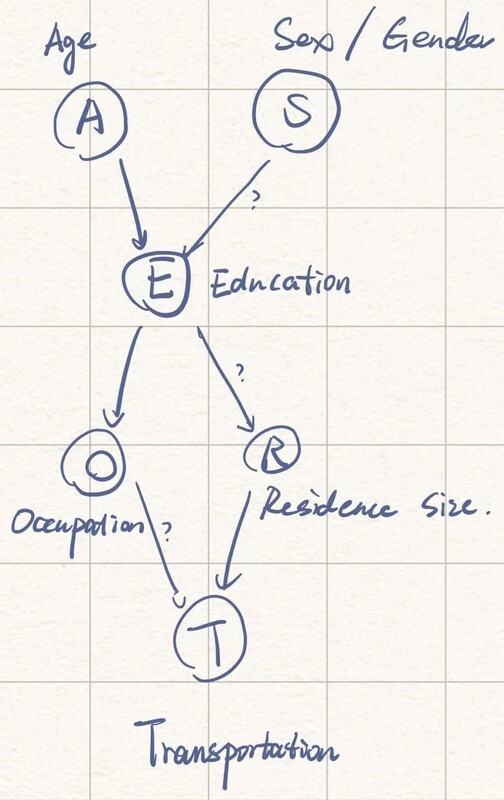 Age
Sex / Gender
A
S
?
E
Education
?
O
R
Occupation
?
Residence size.
T
Transportation